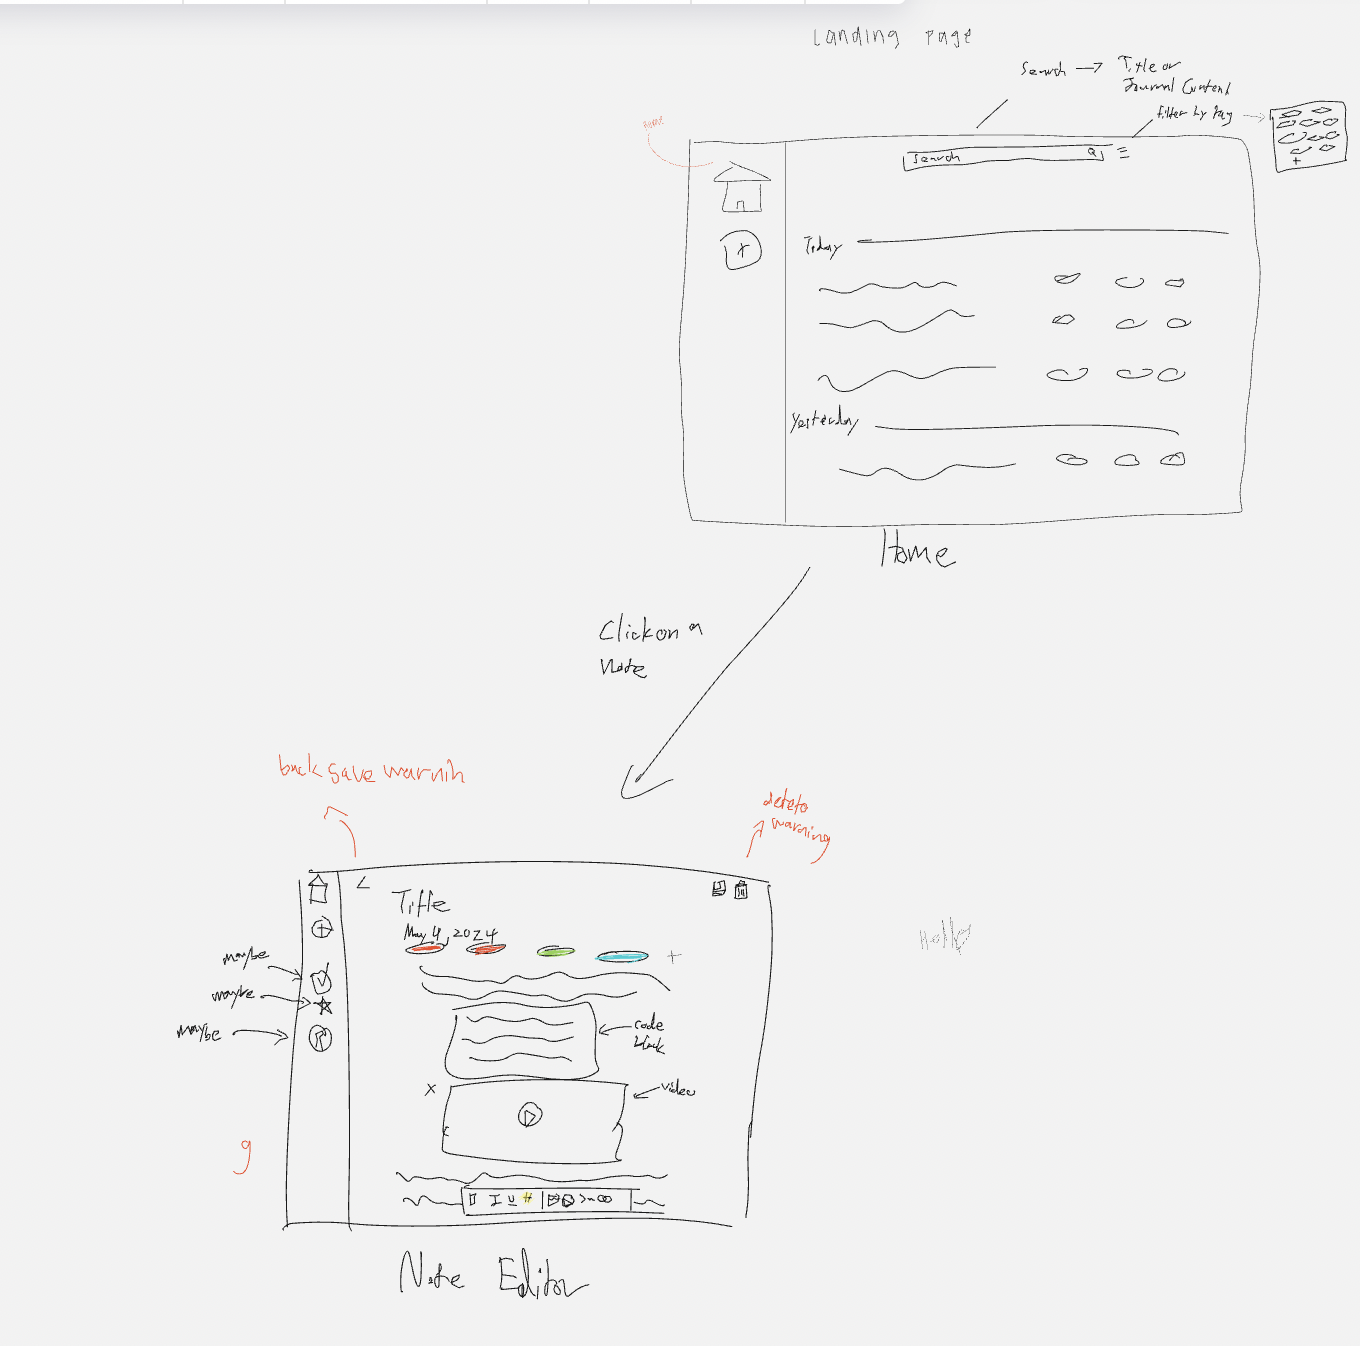 Landing Page
Search → Title or
Journal Content
filter by tag
Home
Search
Today
Yesterday
Home
Click on a
Note
back save warnin
delete
warning
Title
May 4, 2024
+
maybe
maybe
maybe
code
block
x
video
I U #
g
Hello
Note Editor